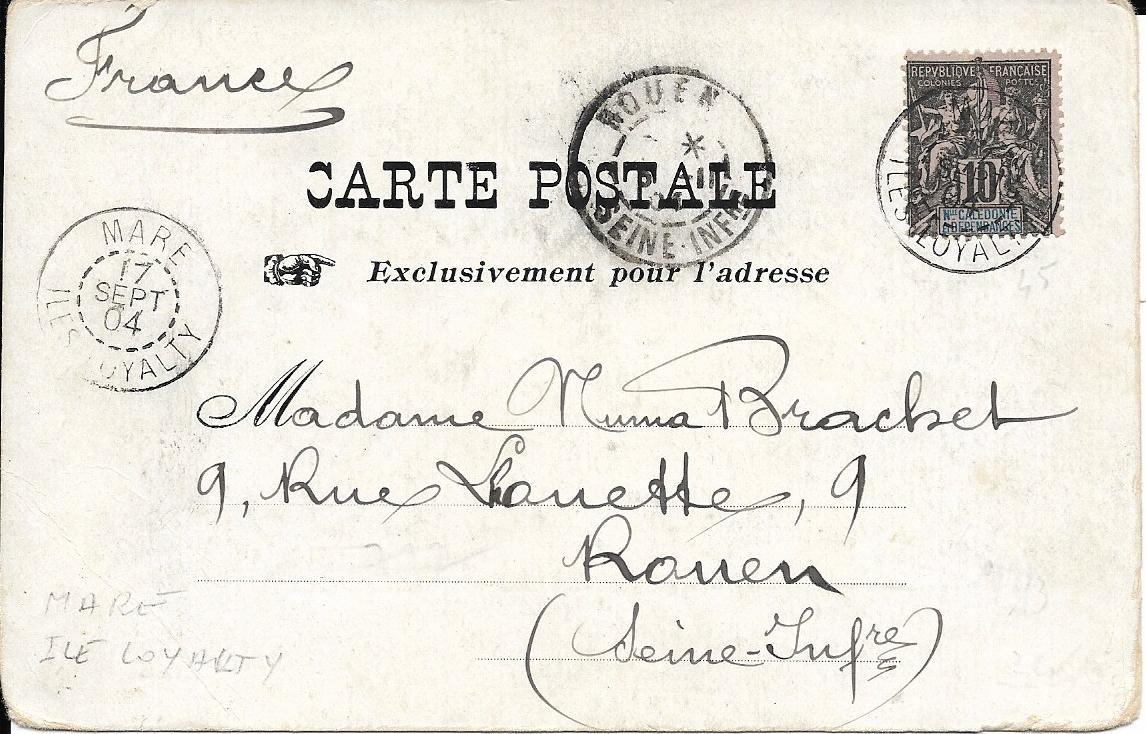 France
REPVBLIQVE FRANÇAISE
COLONIES POSTES
10
Nlle CALÉDONIE
& DÉPENDANCES
ILES LOYALTY
ROUEN
04
SEINE-INFRE
CARTE POSTALE
Exclusivement pour l'adresse
MARE
17
SEPT
04
ILES LOYALTY
45
Madame Numa Brachet
9, Rue Louette, 9
Rouen
(Seine-Infre)
MARÉ
ILE LOYALTY